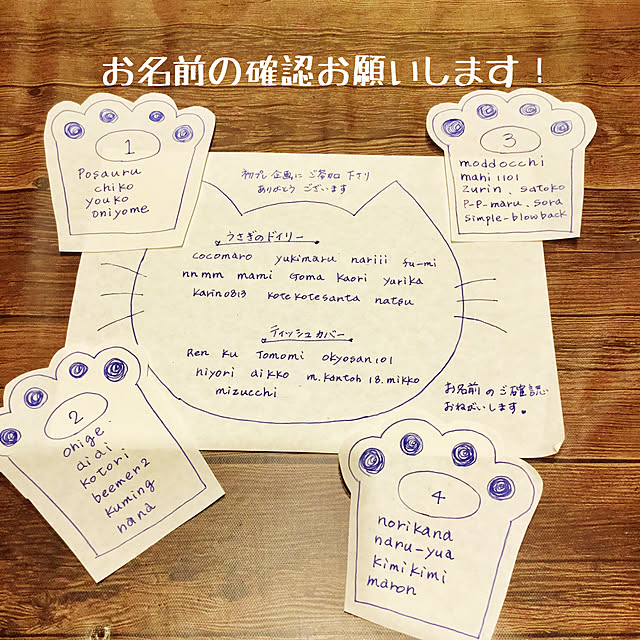 お名前の確認お願いします！
1
Posauru
chiko
youko
oniyome
3
moddocchi
mahi1101
zurin、satoko
P-P-maru、sora
simple-blowback
初プレ企画に ご参加 下さり
ありがとう ございます
うさぎのドイリー
cocomaro yukimaru nariii fu-mi
nnmm mami Goma kaori yurika
karin0813 kotekotesanta natsu
ティッシュカバー
Ren ku Tomomi okyosan101
hiyori aikko m.kantoh 18.mikko
mizucchi
お名前のご確認
おねがいします。
2
ohige
aiai
kotori
beemen2
kuming
nana
4
norikana
naru-yua
kimikimi
maron